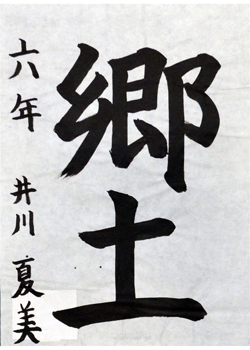 郷土
六年 井川夏美